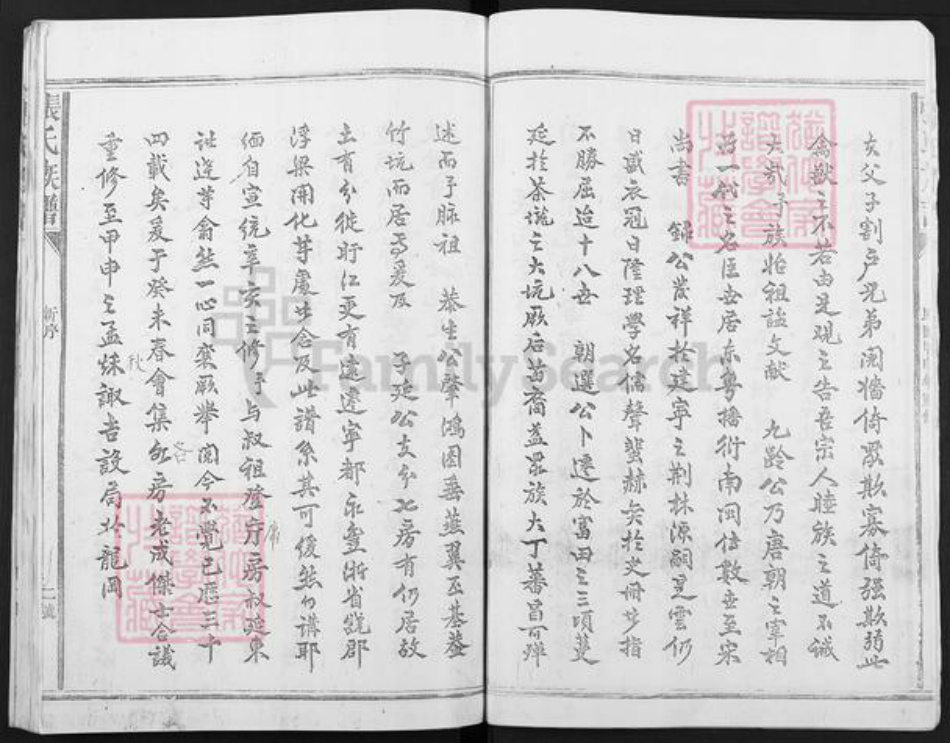 友父子割戶兄弟鬩牆倚眾欺寡倚強欺弱此
禽獸之不若由是觀之告吾宗人睦族之道不誠
大哉予族始祖諡文献 九齡公乃唐朝之宰相
為一代之名臣世居东粤播衍南闽传數世至宋
尚書 錦公發祥於建寧之荆林源嗣是雲仍
日盛衣冠日隆理學名儒聲蜚赫矣於史冊步指
不勝屈迨十八世 朝選公卜遷於富田之三項
延於茶漈之大坑厥后苗裔益眾族大丁蕃昌可
述而予脉祖 泰生公肇鴻圖垂燕翼丕基
竹坑而居焉爰及 子延公支分七房有仍居故
土有分徙盱江更有遠遷寧都永豐浙省郡
浮梁開化等處生念及此譜系其可缓然勿講耶
缅自宣统辛亥之修予与叔祖發庠房叔延東
祉進等翕然一心同襄厥举阅今不覺已歷三十
四載矣爰于癸未春會集各房老成傑士合議
重修至甲申之孟秋諏吉設局於龍岡
張氏族譜
新序
二號
FamilySearch